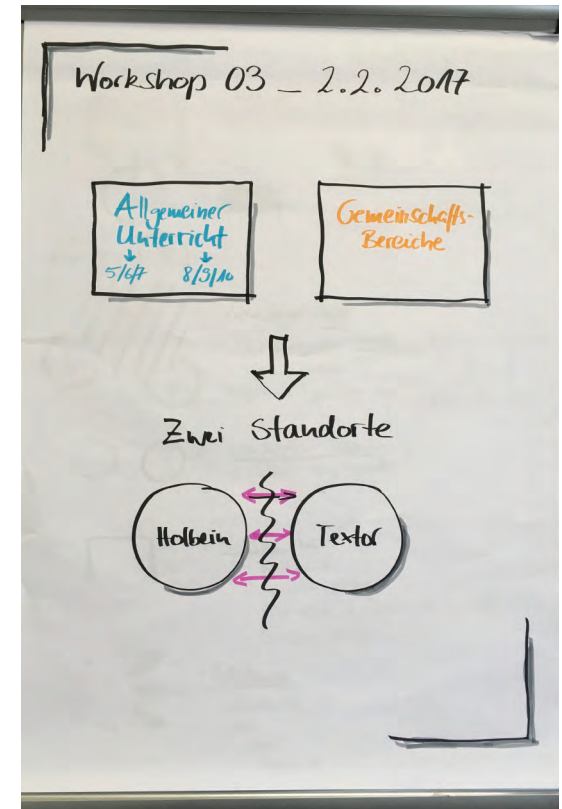 Workshop 03 _ 2.2.2017
Allgemeiner
Unterricht
↓ ↓
5/6/7 8/9/10
Gemeinschafts-
Bereiche
Zwei Standorte
Holbein
Textor